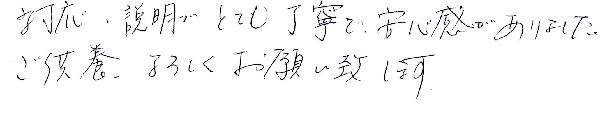 対応、説明がとても丁寧で、安心感がありました。
ご供養、よろしくお願い致します